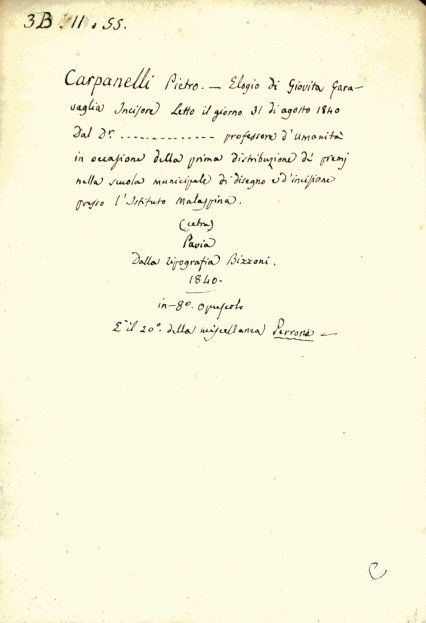 3B. 11. 55.
Carpanelli Pietro. — Elogio di Giovita Gara-
vaglia Incisore Letto il giorno 31 di agosto 1840
Dal Dr. .............. professore d'umanità
in occasione della prima distribuzione de' premj
nella scuola municipale di disegno e d'incisione
presso l'Istituto Malaspina.
(cetra)
Pavia
Dalla Tipografia Bizzoni.
1840.
in-8º. opuscolo
È il 20º. della miscellanea Perrone —
C